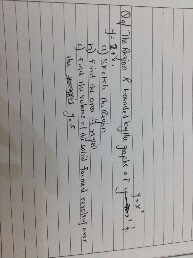 Q4 The Region R bounded by the graphs of y = x² &
y = 2 + x.
a) Sketch the Region
b) Find the area of region
c) Find the volume of the solid formed revolving over
the y = 5